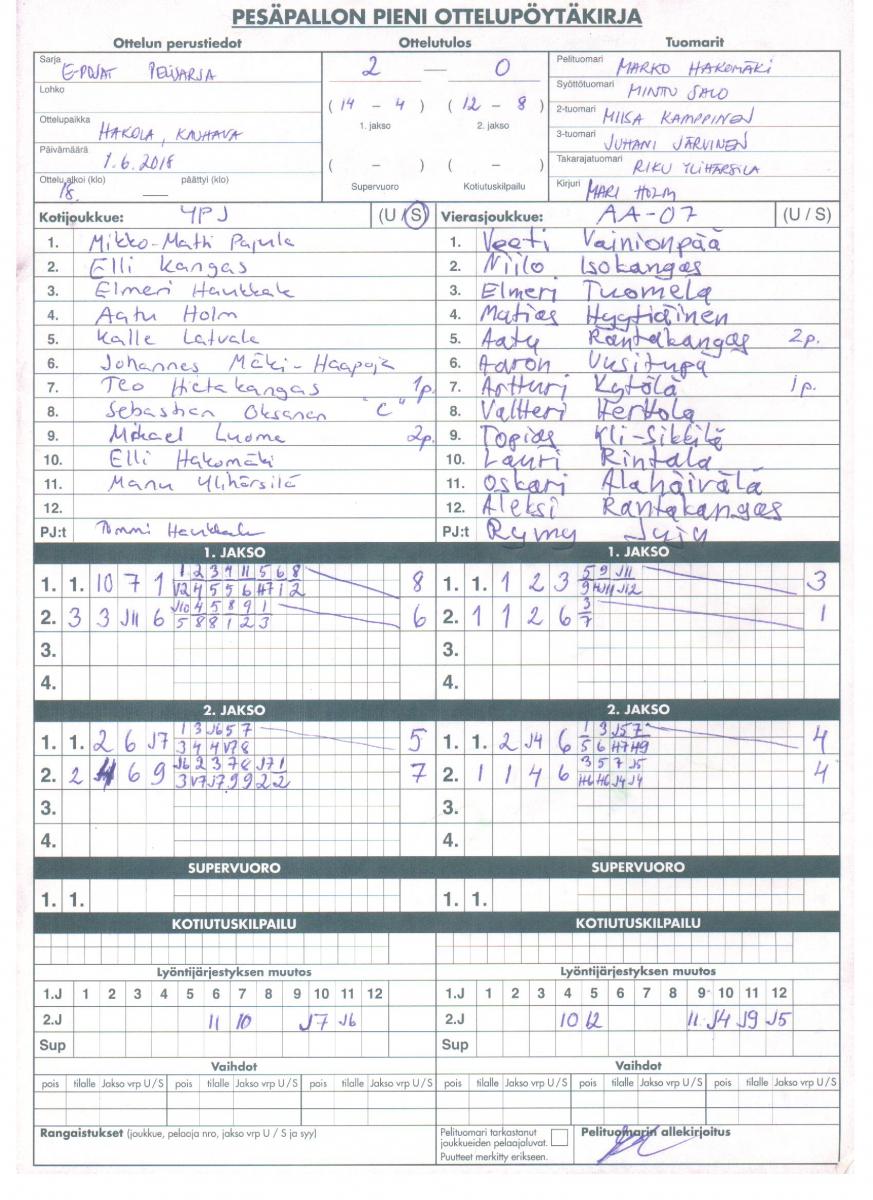 PESÄPALLON PIENI OTTELUPÖYTÄKIRJA
Ottelun perustiedot
Ottelutulos
Tuomarit
Sarja E-POJAT PELISARJA
Lohko
Ottelupaikka HAKOLA, KAUHAVA
Päivämäärä 1.6.2018
Ottelu alkoi (klo) 18. päättyi (klo) —
2 — 0
( 14 - 4 ) ( 12 - 8 )
1. jakso 2. jakso
( - ) ( - )
Supervuoro Kotiutuskilpailu
Pelituomari MARKO HAKOMÄKI
Syöttötuomari MINTTU SALO
2-tuomari MIISA KAMPPINEN
3-tuomari JUHANI JÄRVINEN
Takarajatuomari RIKU YLIHÄRSILÄ
Kirjuri MARI HOLM
Kotijoukkue: YPJ (U / S)
1. Mikko-Matti Pajula
2. Elli Kangas
3. Elmeri Haukkala
4. Aatu Holm
5. Kalle Latvala
6. Johannes Mäki-Haapoja
7. Teo Hietakangas 1p.
8. Sebastian Oksanen "C"
9. Mikael Luoma 2p.
10. Elli Hakomäki
11. Manu Ylihärsilä
12.
PJ:t Tommi Haukkala
Vierasjoukkue: AA-07 (U / S)
1. Veeti Vainionpää
2. Niilo Isokangas
3. Elmeri Tuomela
4. Matias Hyytiäinen
5. Aatu Rantakangas 2p.
6. Aaron Uusitupa
7. Artturi Kytölä 1p.
8. Valtteri Herttola
9. Topias Yli-Sikkilä
10. Lauri Rintala
11. Oskari Alahäivälä
12. Aleksi Rantakangas
PJ:t Rymy Jyju
1. JAKSO
1. 1. 10 7 1 1 2 3 4 11 5 6 8 8
2. 3 3 J11 6 J10 4 5 8 9 1 6
5 8 8 1 2 3
3.
4.
1. JAKSO
1. 1. 1 2 3 5 9 J11 3
2. 1 1 2 6 3 1
7
3.
4.
2. JAKSO
1. 1. 2 6 J7 1 3 J6 5 7 5
3 4 4 V7 8
2. 2 6 9 J6 2 3 7 8 J7 1 7
3 V7 J7 9 9 2 2
3.
4.
2. JAKSO
1. 1. 2 J4 6 1 3 J5 7 4
5 6 H7 H9
2. 1 1 4 6 3 5 7 J5 4
H6 H6 J4 J4
3.
4.
SUPERVUORO
1. 1.
SUPERVUORO
1. 1.
KOTIUTUSKILPAILU
KOTIUTUSKILPAILU
Lyöntijärjestyksen muutos
1.J 1 2 3 4 5 6 7 8 9 10 11 12
2.J 11 10 J7 J6
Sup
Lyöntijärjestyksen muutos
1.J 1 2 3 4 5 6 7 8 9 10 11 12
2.J 10 12 11 J4 J9 J5
Sup
Vaihdot
pois tilalle Jakso vrp U/S pois tilalle Jakso vrp U/S pois tilalle Jakso vrp U/S
Vaihdot
pois tilalle Jakso vrp U/S pois tilalle Jakso vrp U/S pois tilalle Jakso vrp U/S
Rangaistukset (joukkue, pelaaja nro, jakso vrp U / S ja syy)
Pelituomari tarkastanut
joukkueiden pelaajaluvat.
Puutteet merkitty erikseen.
Pelituomarin allekirjoitus